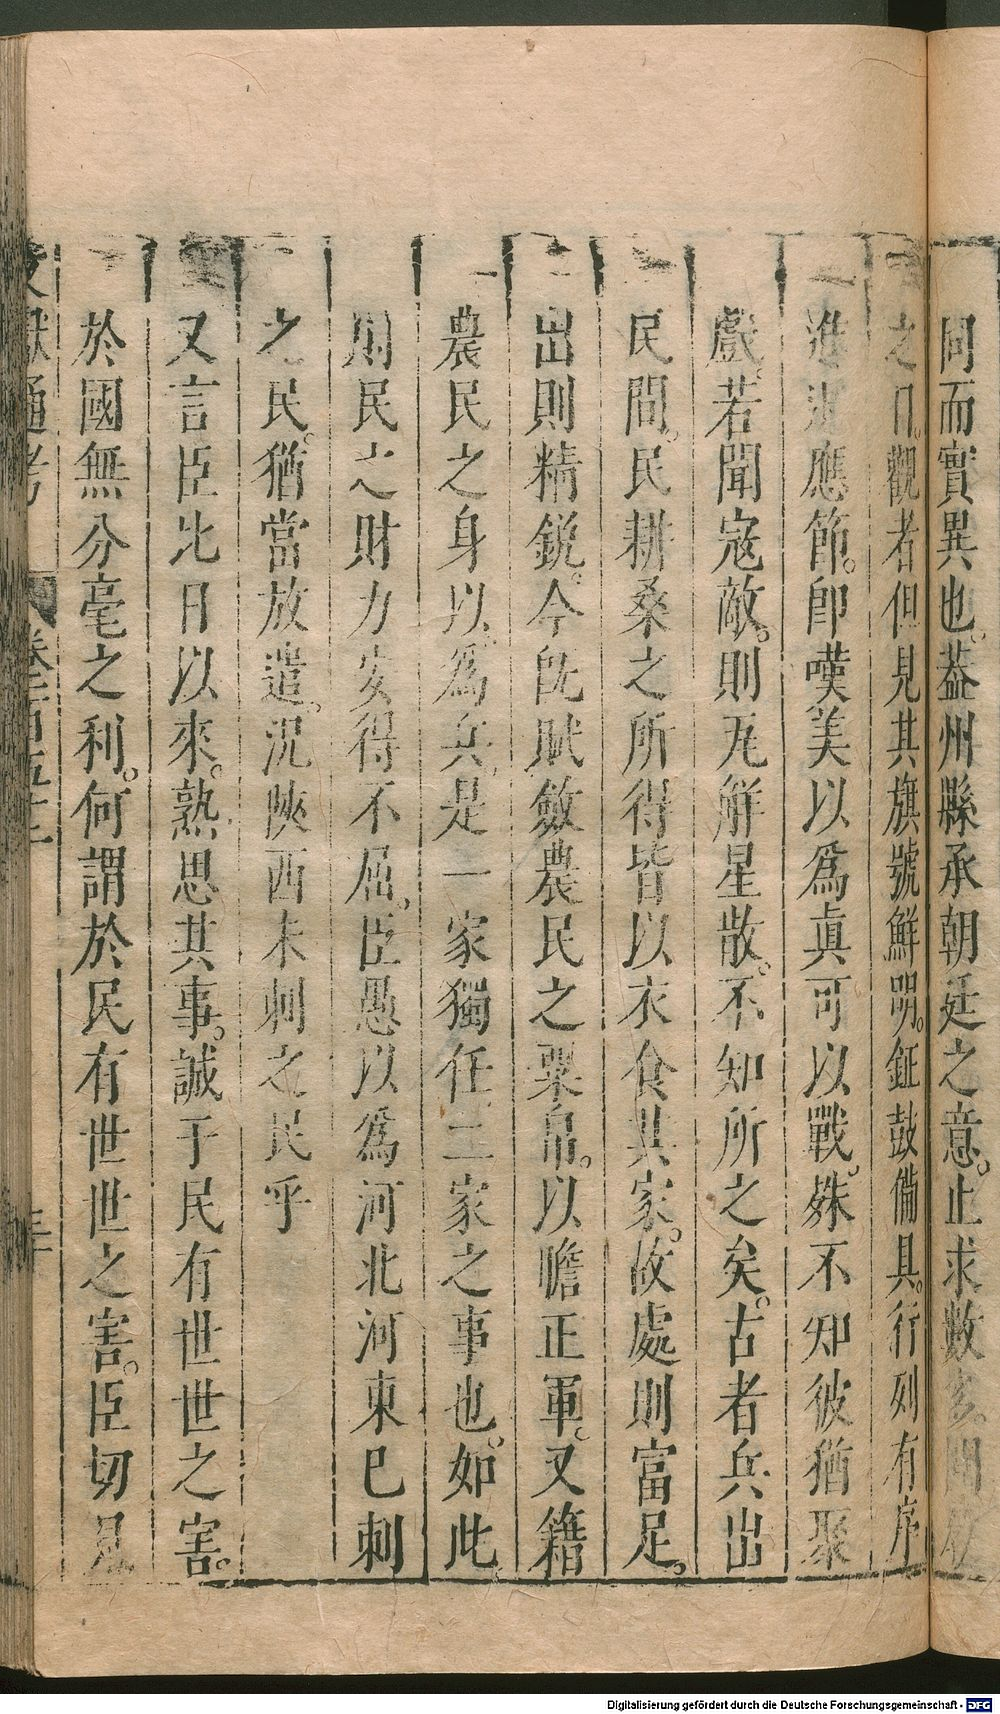 同而實異也。葢州縣承朝廷之意。止求數多。閱
之日。觀者但見其旗號鮮明。鉦鼓備具。行列有序
進退應節。卽嘆美以爲眞可以戰。殊不知彼猶聚
戲。若聞寇敵。則瓦解星散。不知所之矣。古者兵出
民間。民耕桑之所得皆以衣食其家。故處則富足。
出則精銳。今旣賦斂農民之粟帛。以贍正軍。又籍
農民之身以爲兵。是一家獨任二家之事也。如此
則民之財力安得不屈。臣愚以爲河北河東已刺
之民。猶當放遣。況陝西未刺之民乎
又言臣比日以來。熟思其事。誠于民有世世之害。
於國無分毫之利。何謂於民有世世之害。臣切見
文獻通考 卷一百五十三
Digitalisierung gefördert durch die Deutsche Forschungsgemeinschaft - DFG